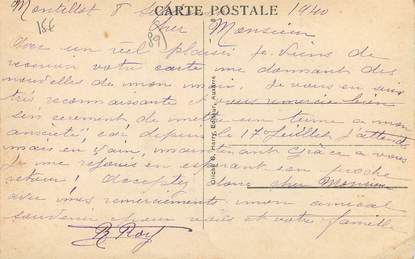 CARTE POSTALE
Montillot 8 1940
156 89 Cher Monsieur
Avec un réel plaisir je viens de
recevoir votre carte me donnant des
nouvelles de mon mari. Je vous en suis
très reconnaissante et vous remercie bien
sincèrement de mettre un terme a mon
anxiété car depuis le 17 juillet j'attends
mais en vain, maintenant grâce a vous
je me rejouis en esperant son proche
retour! Acceptez donc cher Monsieur
avec mes remerciements mon amical
souvenir pour vous et votre famille
R Roy
Cliché B. Harry, Editeur, Auxerre